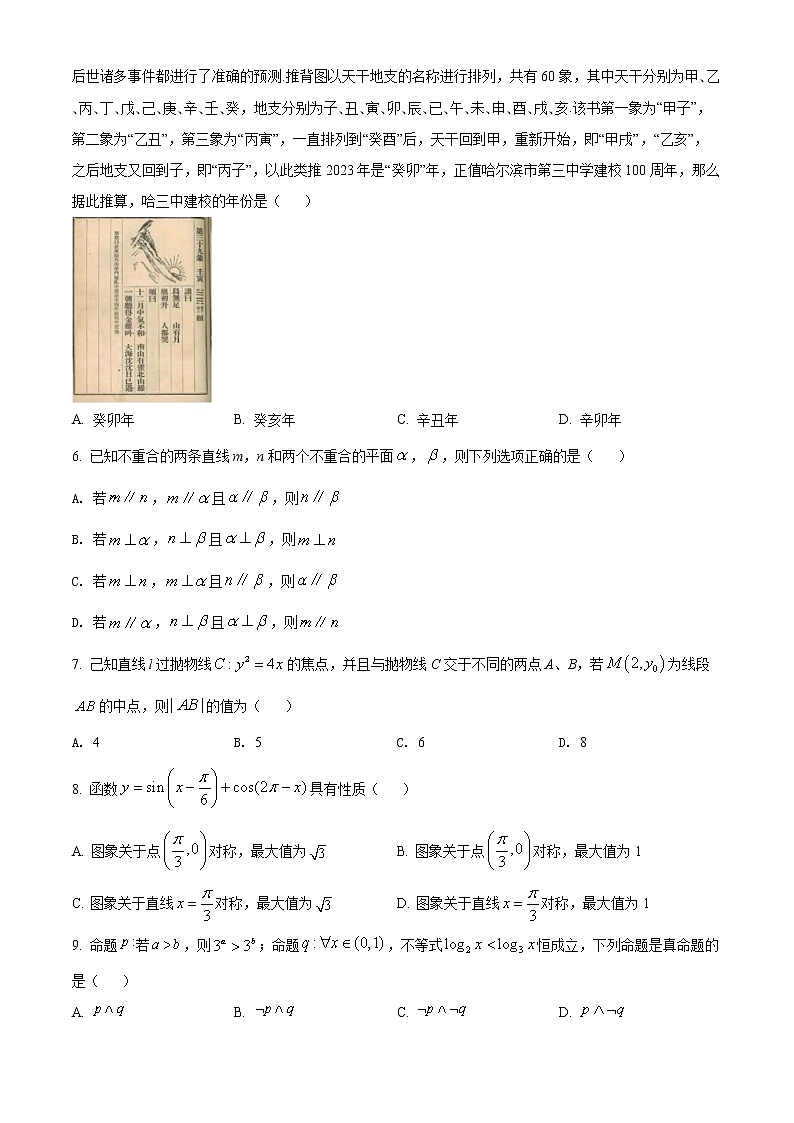 后世诸多事件都进行了准确的预测.推背图以天干地支的名称进行排列，共有60象，其中天干分别为甲、乙
、丙、丁、戊、己、庚、辛、壬、癸，地支分别为子、丑、寅、卯、辰、巳、午、未、申、酉、戌、亥.该书第一象为“甲子”，
第二象为“乙丑”，第三象为“丙寅”，一直排列到“癸酉”后，天干回到甲，重新开始，即“甲戌”，“乙亥”，
之后地支又回到子，即“丙子”，以此类推2023年是“癸卯”年，正值哈尔滨市第三中学建校100周年，那么
据此推算，哈三中建校的年份是（　　）
第三十九象 壬寅
讖曰
鳥無足 山有月
旭初升 人都哭
頌曰
十二月中氣不和 南山有雀北山羅
一朝聽得金雞叫 大海沉沉日已過
A. 癸卯年 B. 癸亥年 C. 辛丑年 D. 辛卯年
6. 已知不重合的两条直线m，n和两个不重合的平面α，β，则下列选项正确的是（　　）
A. 若m∥n，m∥α且α∥β，则n∥β
B. 若m⊥α，n⊥β且α⊥β，则m⊥n
C. 若m⊥n，m⊥α且n∥β，则α∥β
D. 若m∥α，n⊥β且α⊥β，则m∥n
7. 己知直线l过抛物线C:y²=4x的焦点，并且与抛物线C交于不同的两点A、B，若M(2,y₀)为线段
AB的中点，则|AB|的值为（　　）
A. 4 B. 5 C. 6 D. 8
8. 函数y=sin(x−π/6)+cos(2π−x)具有性质（　　）
A. 图象关于点(π/3,0)对称，最大值为√3 B. 图象关于点(π/3,0)对称，最大值为1
C. 图象关于直线x=π/3对称，最大值为√3 D. 图象关于直线x=π/3对称，最大值为1
9. 命题p:若a>b，则3ᵃ>3ᵇ；命题q:∀x∈(0,1)，不等式log₂x<log₃x恒成立，下列命题是真命题的
是（　　）
A. p∧q B. ¬p∧q C. ¬p∧¬q D. p∧¬q